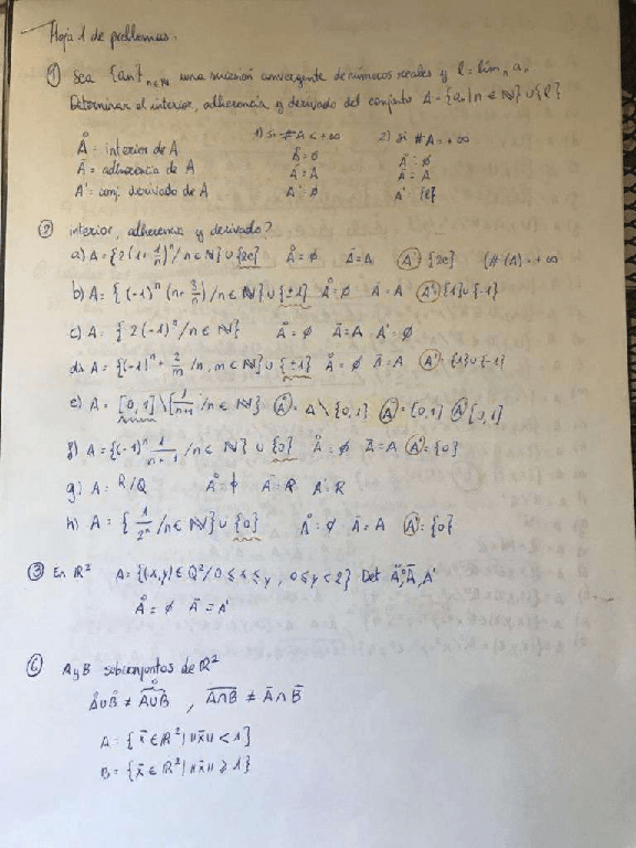 Hoja 1 de problemas.
① Sea {an} n∈ℕ una sucesión convergente de números reales y l = lím n an
Determinar el interior, adherencia y derivado del conjunto A = {an | n ∈ ℕ} ∪ {l}
1) Si #A < +∞ 2) Si #A = +∞
Å = interior de A Å = ∅ Å = ∅
Ā = adherencia de A Ā = A Ā = A
A' = conj. derivado de A A' = ∅ A' = {l}
② interior, adherencia y derivado?
a) A = {2(1+1/n)ⁿ / n ∈ ℕ} ∪ {2e} Å = ∅ Ā = A A' = {2e} (#(A) = +∞
b) A = {(-1)ⁿ (n+3/n) / n ∈ ℕ} ∪ {±1} Å = ∅ Ā = A A' = {1} ∪ {-1}
c) A = {2(-1)ⁿ / n ∈ ℕ} Å = ∅ Ā = A A' = ∅
d) A = {(-1)ⁿ + 2/m / n, m ∈ ℕ} ∪ {±1} Å = ∅ Ā = A A' = {1} ∪ {-1}
e) A = [0,1] \ {1/n+1 / n ∈ ℕ} Å = A \ {0,1} Ā = [0,1] A' [0,1]
f) A = {(-1)ⁿ 1/n+1 / n ∈ ℕ} ∪ {0} Å = ∅ Ā = A A' = {0}
g) A = ℝ/ℚ Å = ∅ Ā = ℝ A' = ℝ
h) A = {1/2ⁿ / n ∈ ℕ} ∪ {0} Å = ∅ Ā = A A' = {0}
③ En ℝ² A = {(x,y) ∈ ℚ² / 0 ≤ x ≤ y, 0 ≤ y < 2} Det Å, Ā, A'
Å = ∅ Ā = A'
⑥ A y B subconjuntos de ℝ²
Å ∪ B̊ ≠ (A∪B)° , \overline{A∩B} ≠ Ā ∩ B̄
A = {x̄ ∈ ℝ² | ||x̄|| < 1}
B = {x̄ ∈ ℝ² | ||x̄|| ≥ 1}